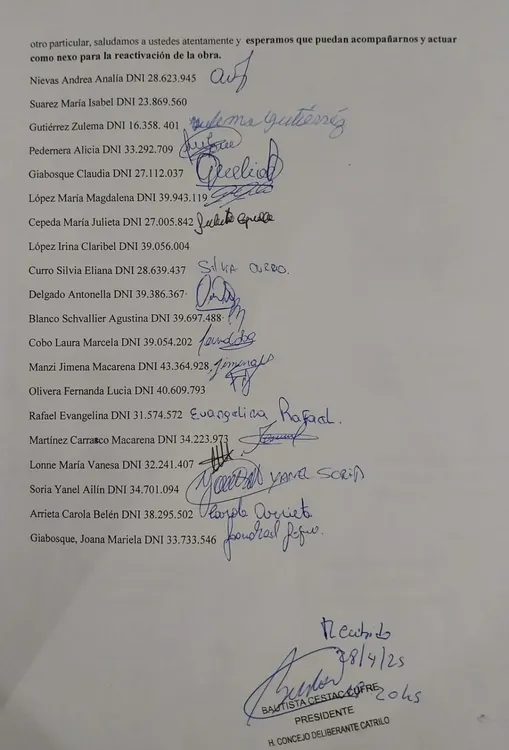 otro particular, saludamos a ustedes atentamente y esperamos que puedan acompañarnos y actuar
como nexo para la reactivación de la obra.
Nievas Andrea Analía DNI 28.623.945
Suarez María Isabel DNI 23.869.560
Gutiérrez Zulema DNI 16.358. 401 Zulema Gutiérréz
Pedernera Alicia DNI 33.292.709
Giabosque Claudia DNI 27.112.037
López María Magdalena DNI 39.943.119
Cepeda María Julieta DNI 27.005.842 Julieta Cepeda
López Irina Claribel DNI 39.056.004
Curro Silvia Eliana DNI 28.639.437 Silvia Curro.
Delgado Antonella DNI 39.386.367
Blanco Schvallier Agustina DNI 39.697.488
Cobo Laura Marcela DNI 39.054.202
Manzi Jimena Macarena DNI 43.364.928 Jimena
Olivera Fernanda Lucia DNI 40.609.793
Rafael Evangelina DNI 31.574.572 Evangelina Rafael.
Martínez Carrasco Macarena DNI 34.223.973
Lonne María Vanesa DNI 32.241.407
Soria Yanel Ailín DNI 34.701.094 YANEL SORIA
Arrieta Carola Belén DNI 38.295.502 Carola Arrieta
Giabosque, Joana Mariela DNI 33.733.546
Recibido
28/4/25
20hs
BAUTISTA CESTAC CUFRE
PRESIDENTE
H. CONCEJO DELIBERANTE CATRILO